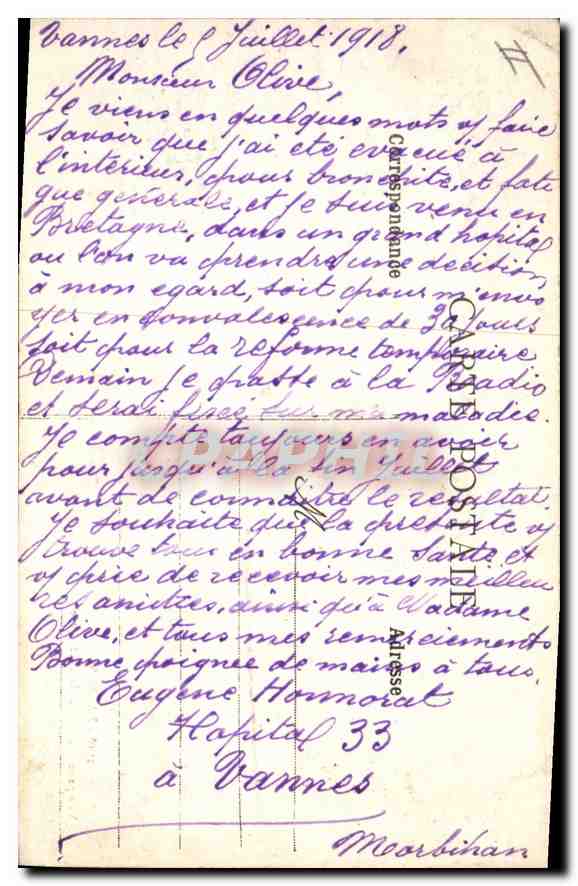 Vannes le 5 Juillet 1918.
II
Monsieur Olive,
Je viens en quelques mots vs faire
savoir que j'ai été évacué à
l'intérieur, pour bronchite, et fati
gue générale, et je suis venu en
Bretagne, dans un grand hopital
ou l'on va prendre une décision
à mon egard, soit pour m'envo
yer en convalescence de 30 jours
soit pour la réforme temporaire
Demain je passe à la Radio
et serai fixé sur ma maladie.
Je compte toujours en avoir
pour jusqu'à la fin Juillet
avant de connaitre le resultat.
Je souhaite que la présente vs
trouve tous en bonne santé et
vs prie de recevoir mes meilleu
res amitiés, ainsi qu'à Madame
Olive, et tous mes remerciements
Bonne poignée de mains à tous.
Eugène Honnorat
Hopital 33
à Vannes
Morbihan
CARTE POSTALE
Correspondance
Adresse
M
CPAPHIL